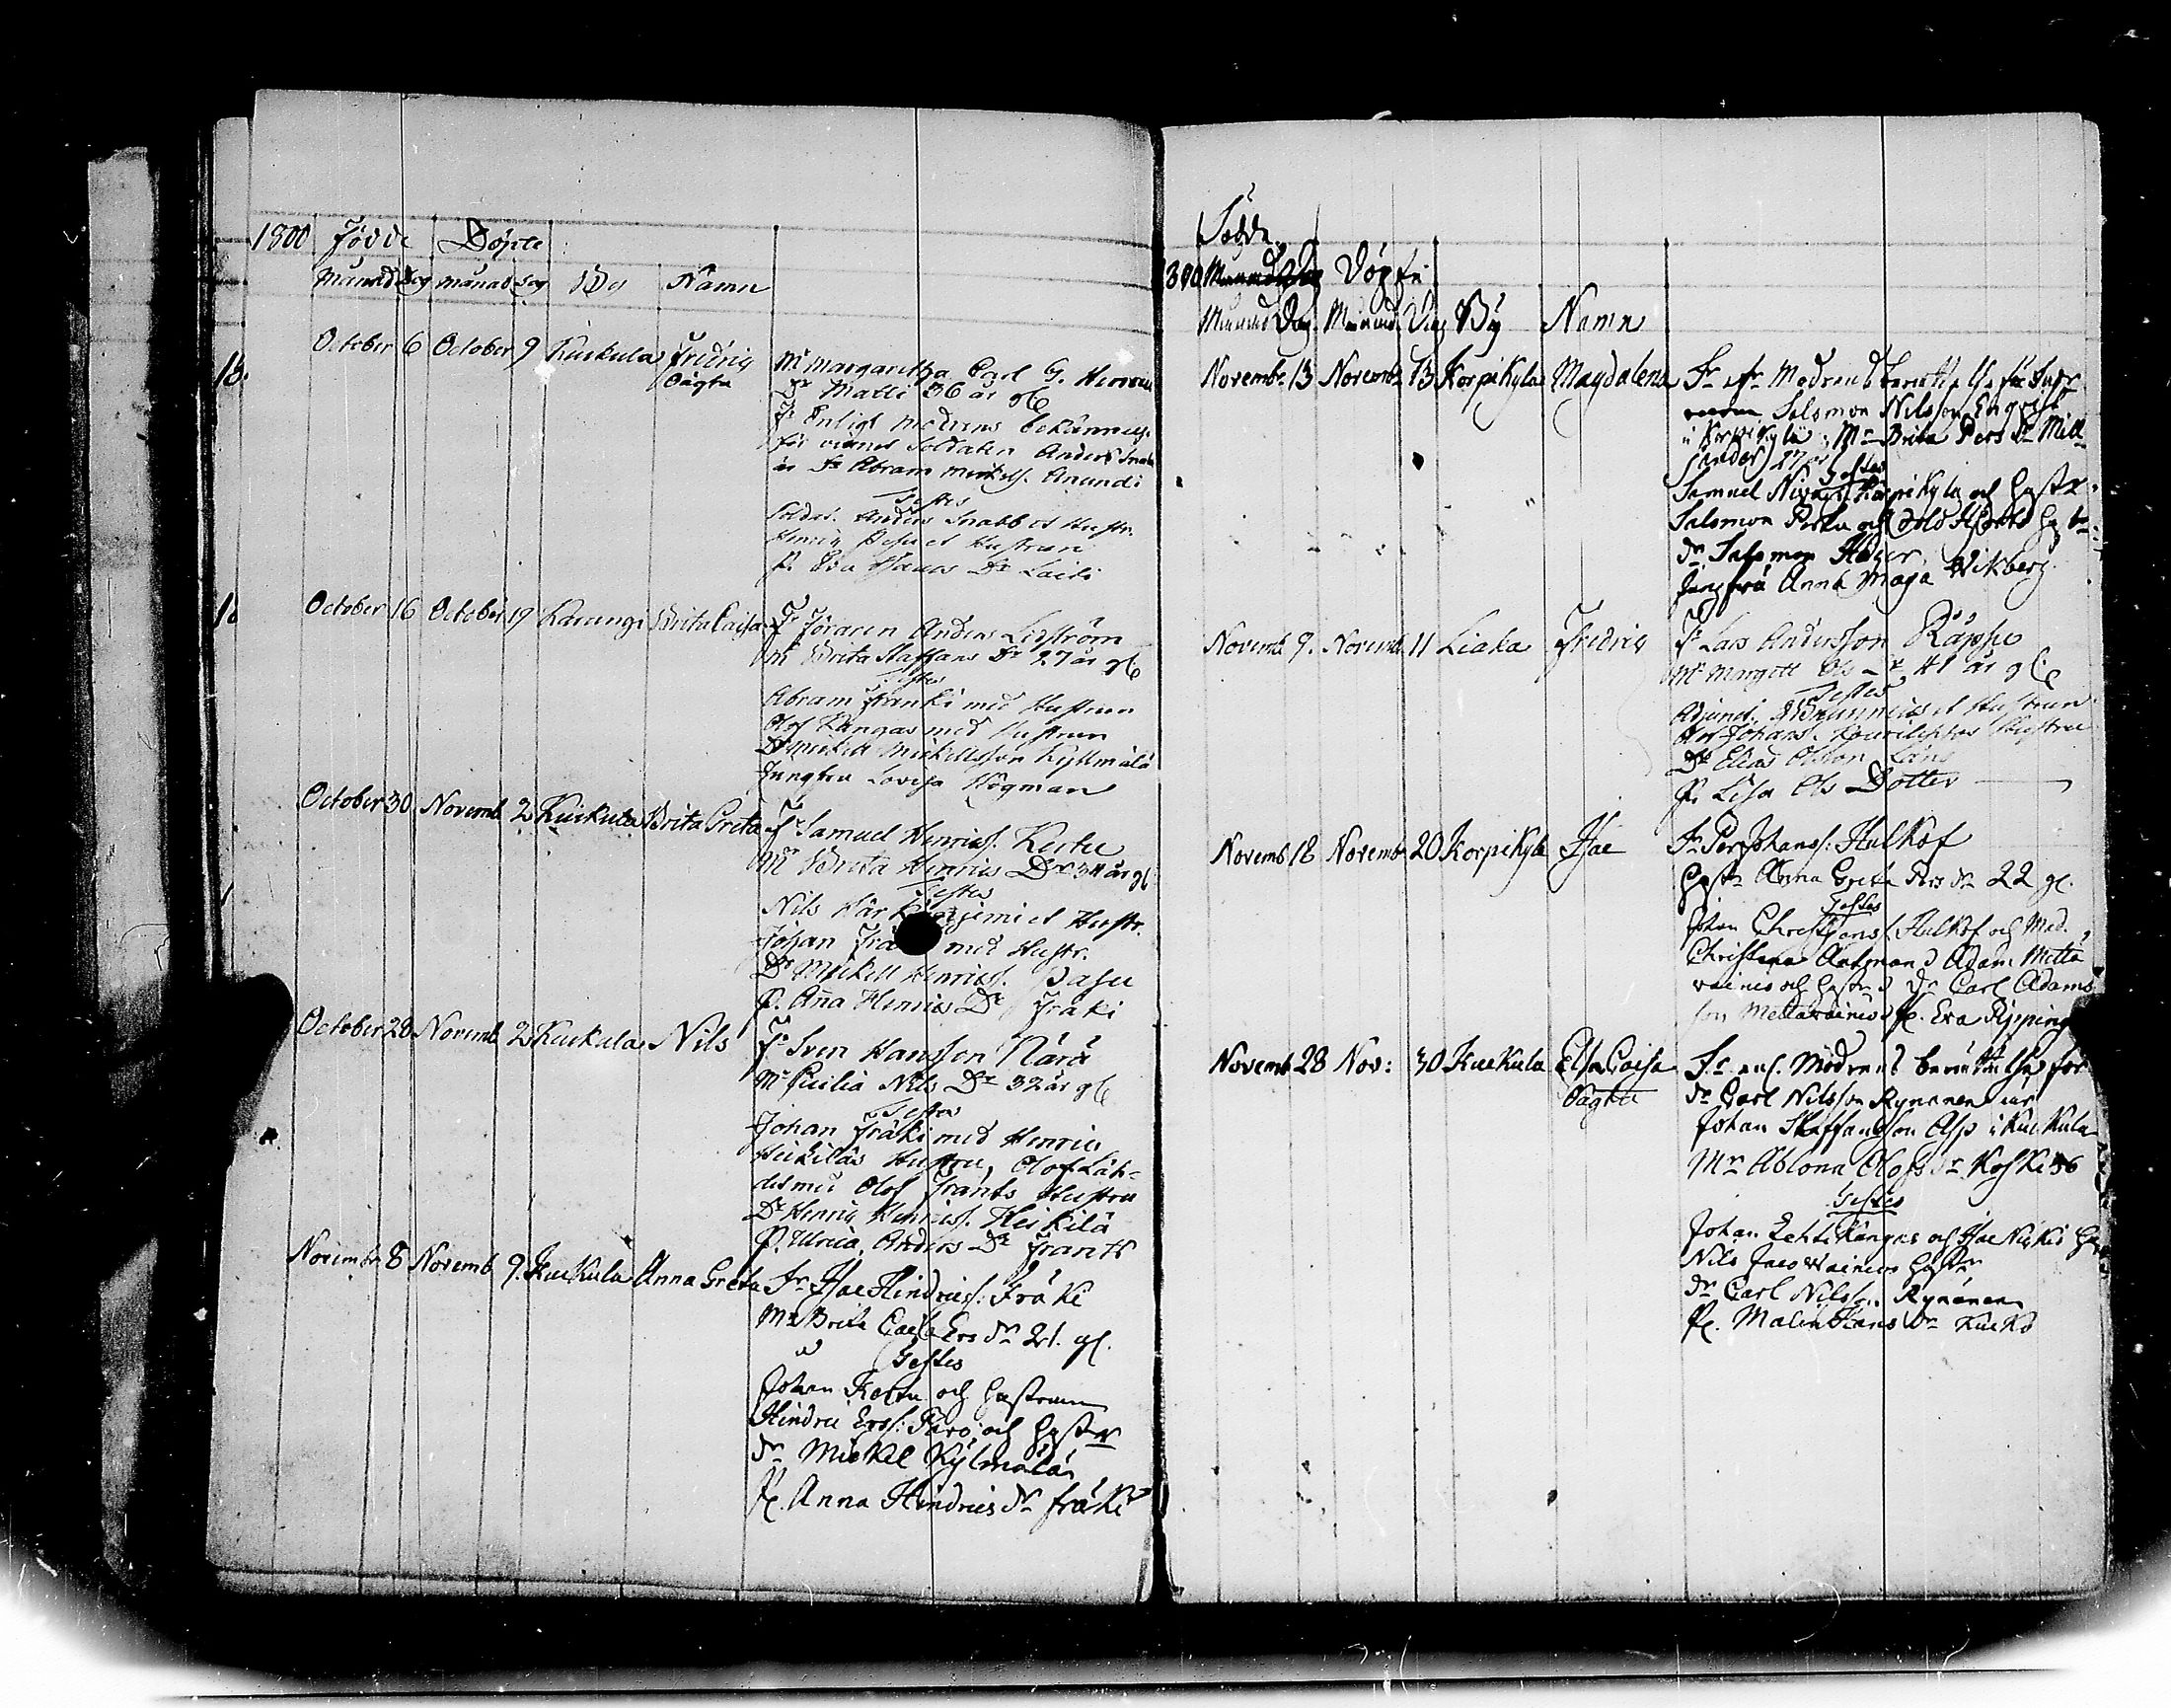 1800 Födde Döpte
Månad Dag månad Dag By Namn
October 6 October 9 Kuckula Fredric
oägta
Mr Margaretha Carl G.
Dr Matts 36 år gl
Fr Enligt modrens bekännelse
för vittnet Soldaten Anders Snabb
är Dr Abram Mickels. Anundi
Testes
Soldat. Anders Snabb et Hustr.
Henric Pesu et Hustrun
P. Eva Hans Dr Laiti
October 16 October 19 Karungi Brita Caisa
Fr Föraren Anders Lidström
Mr Brita Staffans Dr 27 år gl
Testes
Abram Franki med Hustrun
Olof Kangas med Hustrun
Dr Mickell Mickellsson Kyllmälä
Jungfru Lovisa Högman
October 30 Novemb. 2 Kuckula Brita Greta
Fr Samuel Henrics. Kertu
Mr Brita Henrics Dr 34 år gl
Testes
Nils et Hustr.
Johan med Hustr.
Dr Mickell Henrics. Pasu
P. Aña Henrics Dr Fräki
October 28 Novemb 2 Kuckula Nils
Fr Sven Hansson Närä
Mr Cicilia Nils Dr 32 år gl
Testes
Johan Fräki med Henric
Heikiläs Hustru, Olof Läh-
det med Olof Frants Hustru
Dr Henric Henrics. Heikilä
P. Ulrica Anders Dr Frants
Novembr 8 Novemb 9. Kuckula Anna Greta
Fr Isac Hindrics: Fräki
Mr Brita Cajsa Ers dr 21. gl.
Testes
Johan Kertu och hustrun
Hindric Erss: Paro och hustr
dr Mickel Kylmälä
P. Anna Hindrics dr Fräki
Födde
1800 Döpte
Månad Dag. Månad. Dag By Namn
Novembr 13 Novemb 13 Korpikylä Magdalena
Fr efr Modrens berättelse för
Salomon Nilsson Engvist
i Korpikylä; Mr Brita Pers Dr
27 år
Testes
Samuel Korpikylä och hustr
Salomon och hustr
dr Salomon
Jungfru Anna Maja Wikberg
Novemb 9. Novemb 11 Liaka Fredric
Fr Lars Andersson Räpsu
Mr Margett Ols Dr 41 år gl
Testes
Adjunct. et Hustrun
Olof Johans. Hustru
Dr Elias Olsson
P. Lisa Ols Dotter
Novemb. 18 Novemb 20 Korpikylä Isac
Fr Per Johans: Hulkof
hustr Anna Greta Pers dr 22 gl.
Testes
Johan Christians. Hulkof och Mad.
Christina Adam Metta
vainio och hustr dr Carl Adams
son Mettavainio P. Eva Pipping
Novemb 28 Nov: 30 Kuckula Elsa Cajsa
Oägta
Fr enl. Modrens berättelse för
dr Carl Nilsson Rynänen är
Johan Staffansson Asp i Kuckula
Mr Ablona Olofs dr Koski 36
Testes
Johan Lehtikangas och Isac hustr
Nils Jacovainios hustr
dr Carl Nilsson Rynänen
P. Malin Hans dr